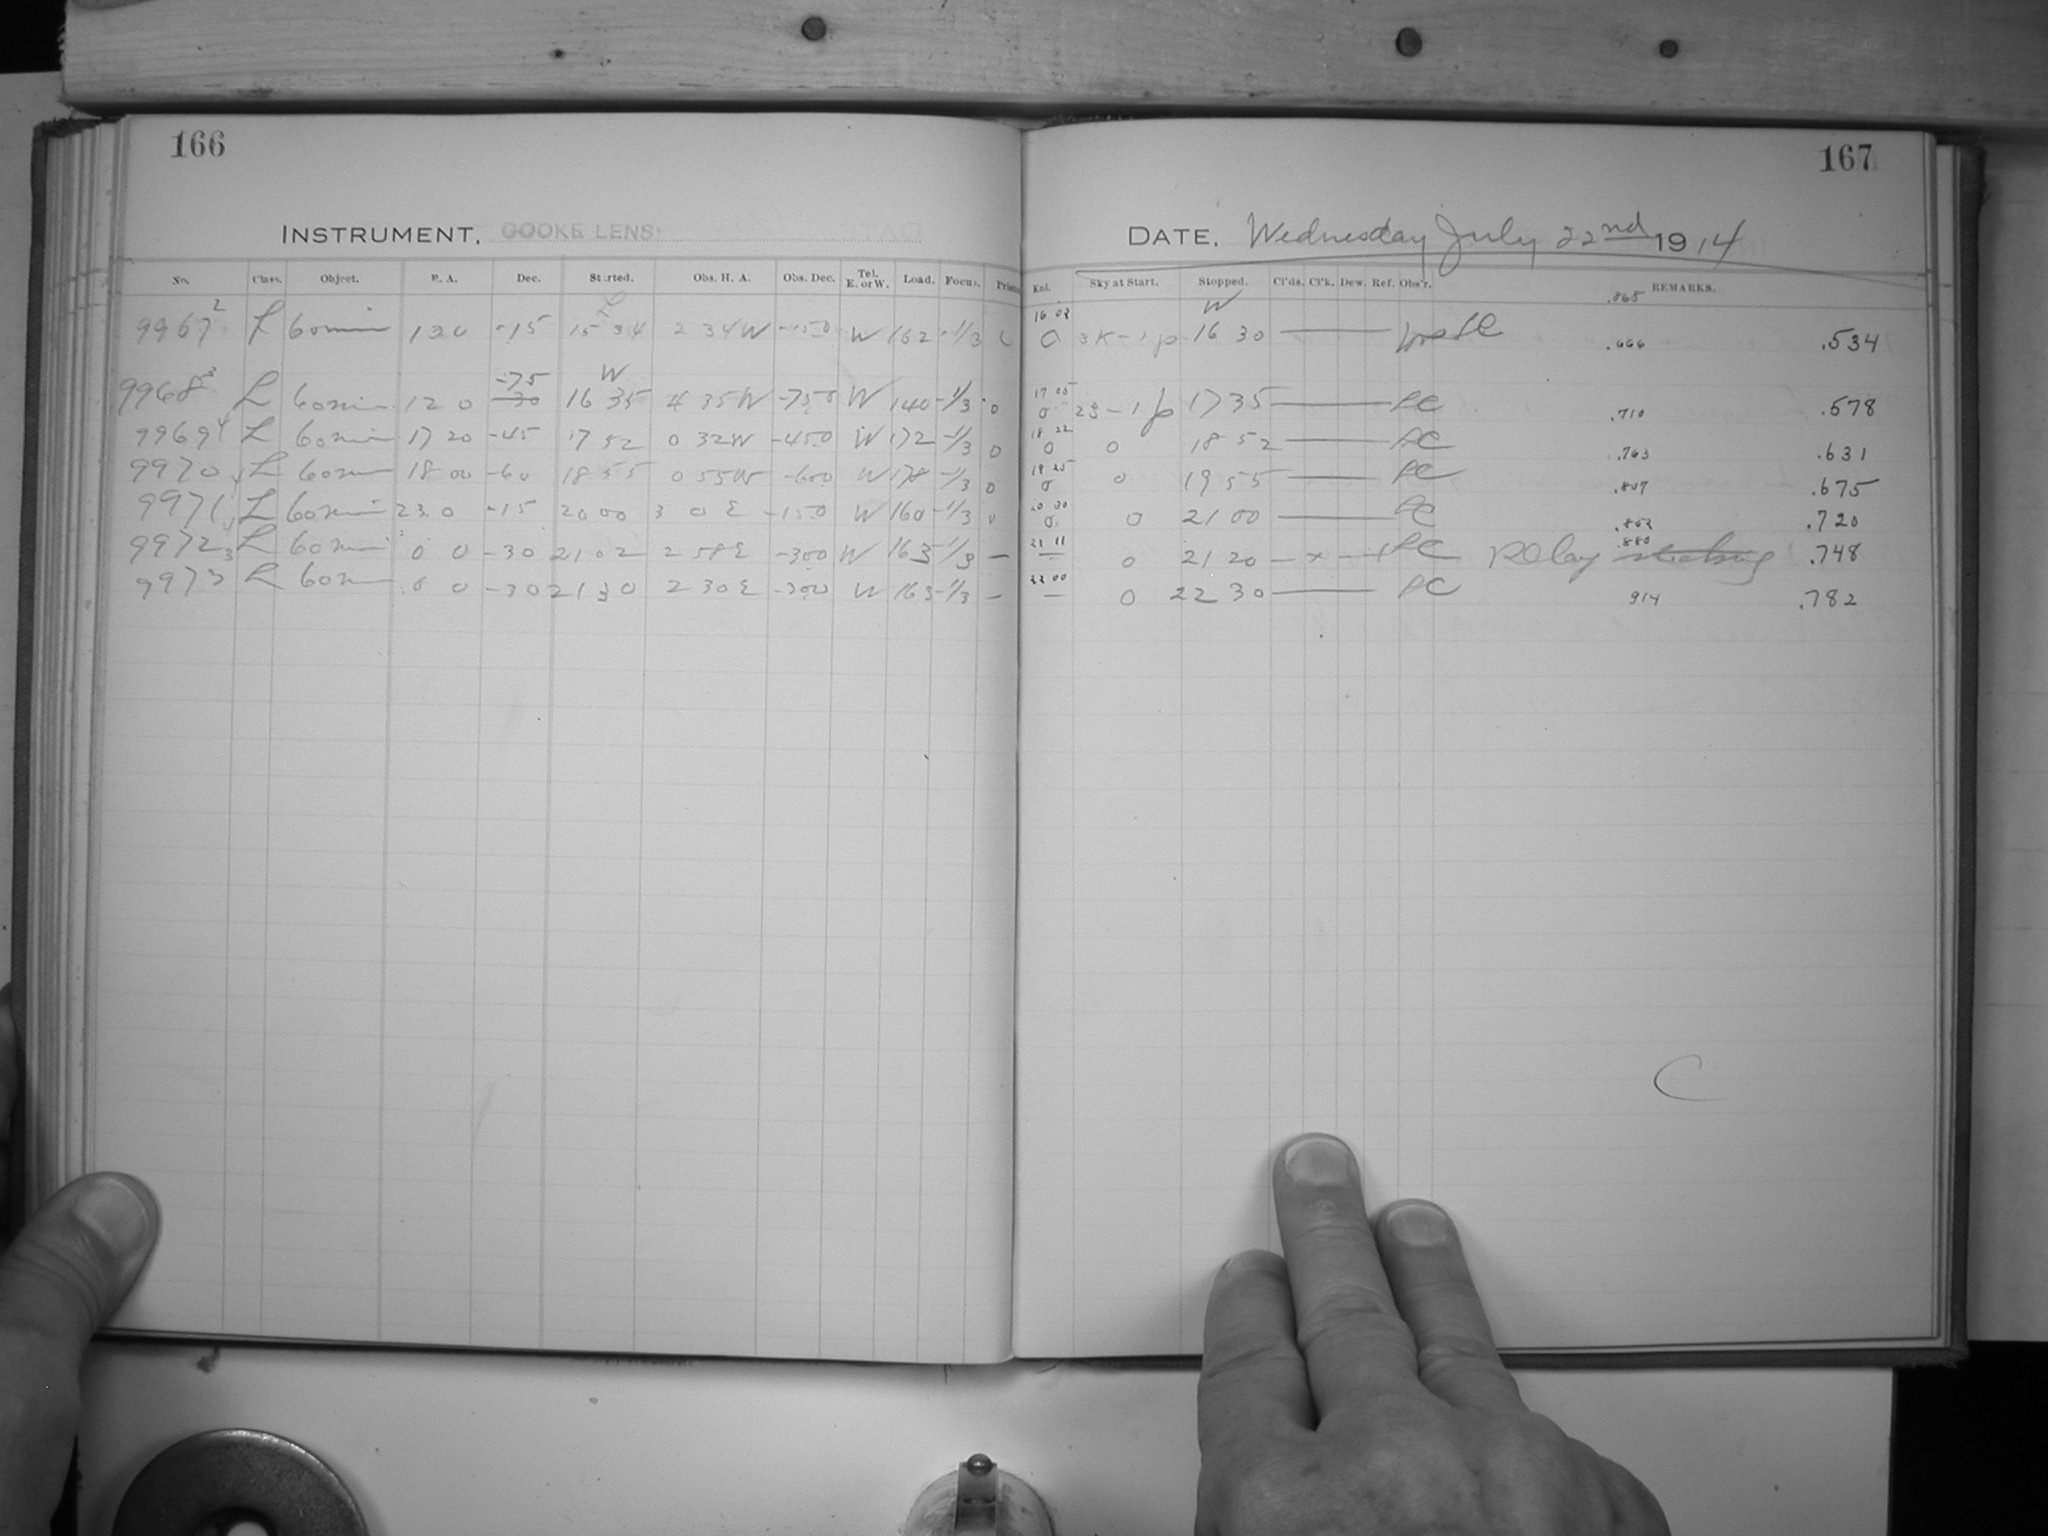 166
167
INSTRUMENT. COOKE LENS
DATE. Wednesday July 22nd 1914
No. Class. Object. R. A. Dec. Started. Obs. H. A. Obs. Dec. Tel. E. or W. Load. Focus. Prism
Knl. Sky at Start. Stopped. Cl'ds. Cl'k. Dew. Ref. Obs'r. REMARKS.
.865
2 16 03 W
9967 L 60 min 1 30 -15 15 34 2 34 W -150 W 162 -1/3 0 16 30 .666 .534
3 -75 W 17 05
9968 L 60 min 12 0 -30 16 35 4 35 W -750 W 140 -1/3 0 0 23-1p 17 35 LC .710 .578
4 18 22
9969 L 60 min 17 20 -45 17 52 0 32 W -450 W 172 -1/3 0 0 0 18 52 LC .763 .631
19 25
9970 L 60 min 18 00 -60 18 55 0 55 W -600 W 178 -1/3 0 0 0 19 55 LC .807 .675
20 30
9971 L 60 min 23 0 -15 20 00 3 0 E -150 W 160 -1/3 0 0 0 21 00 LC .852 .720
21 11
9972 L 60 min 0 0 -30 21 02 2 58 E -300 W 163 -1/3 — — 0 21 20 — x — LC Relay .880 .748
22 00
9973 L 60 m 0 0 -30 21 30 2 30 E -300 W 163 -1/3 — — 0 22 30 LC 914 .782
C